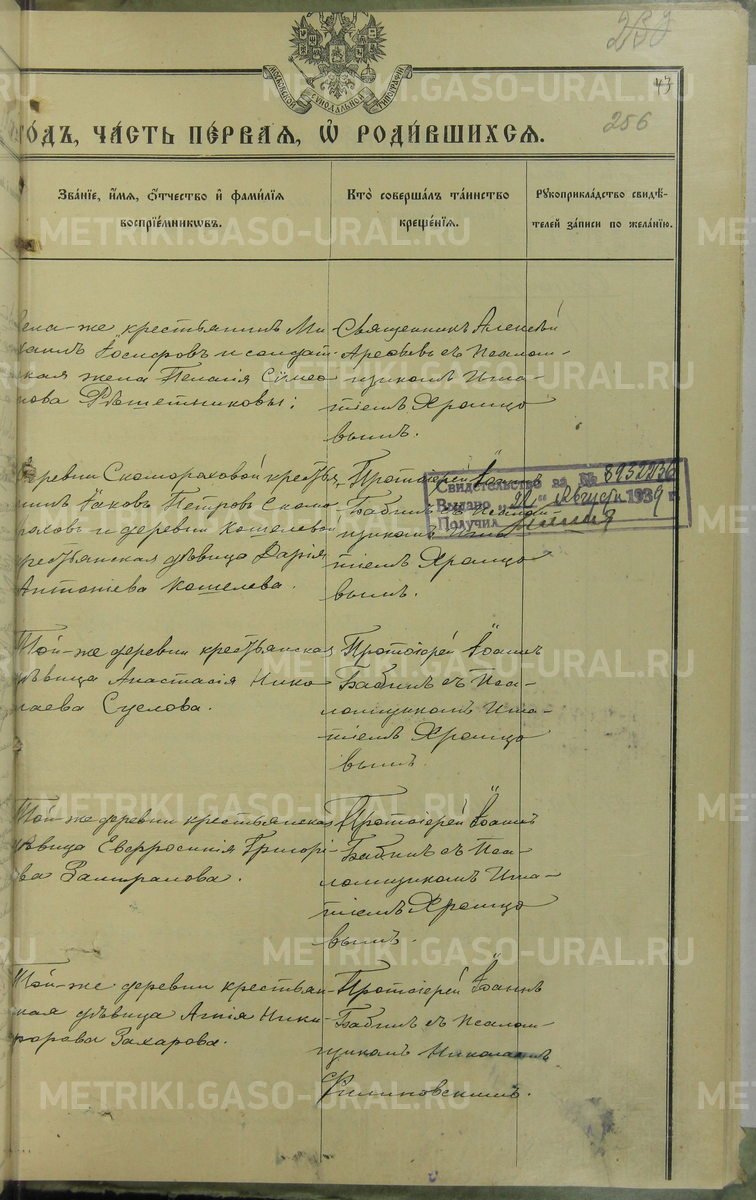 239
43
256
МОСКОВСКОЙ СѴНОДАЛЬНОЙ ТИПОГРАФІИ
ГОДЪ, ЧАСТЬ ПЕРВАЯ, Ѡ РОДИВШИХСЯ.
Званіе, имя, отчество и фамилія
воспріемниковъ.
Кто совершалъ таинство
крещенія.
Рукоприкладство свидѣ-
телей записи по желанію.
села-же крестьянинъ Ми
хаилъ Іосифовъ и солдат
ская жена Пелагія Сімео
нова Рѣшетниковы;
Священникъ Алексѣй
Арефьевъ съ Псалом-
щикомъ Игна-
тіемъ Хромцо
вымъ.
Деревни Скомороховой крестья
нинъ Іаковъ Петровъ Скомо
роховъ и деревни Кошелевой
крестьянская дѣвица Дарія
Антоніева Кошелева.
Протоіерей Іоаннъ
Бабинъ съ Псалом-
щикомъ Игна
тіемъ Хромцо
вымъ.
Свидетельство за № 8932436
Выдано "22" августа 1939 г.
Получил
Той-же деревни крестьянская
дѣвица Анастасія Нико
лаева Суслова.
Протоіерей Іоаннъ
Бабинъ съ Пса-
ломщикомъ Игна-
тіемъ Хромцо
вымъ.
Той-же деревни крестьянская
дѣвица Евфросинія Григорі-
ева
Протоіерей Іоаннъ
Бабинъ съ Пса-
ломщикомъ Игна-
тіемъ Хромцо
вымъ.
Той-же деревни крестьян-
ская дѣвица Агнія Ники
форова Захарова.
Протоіерей Іоаннъ
Бабинъ съ Псалом-
щикомъ Николаемъ
Филиповскимъ.
METRIKI.GASO-URAL.RU